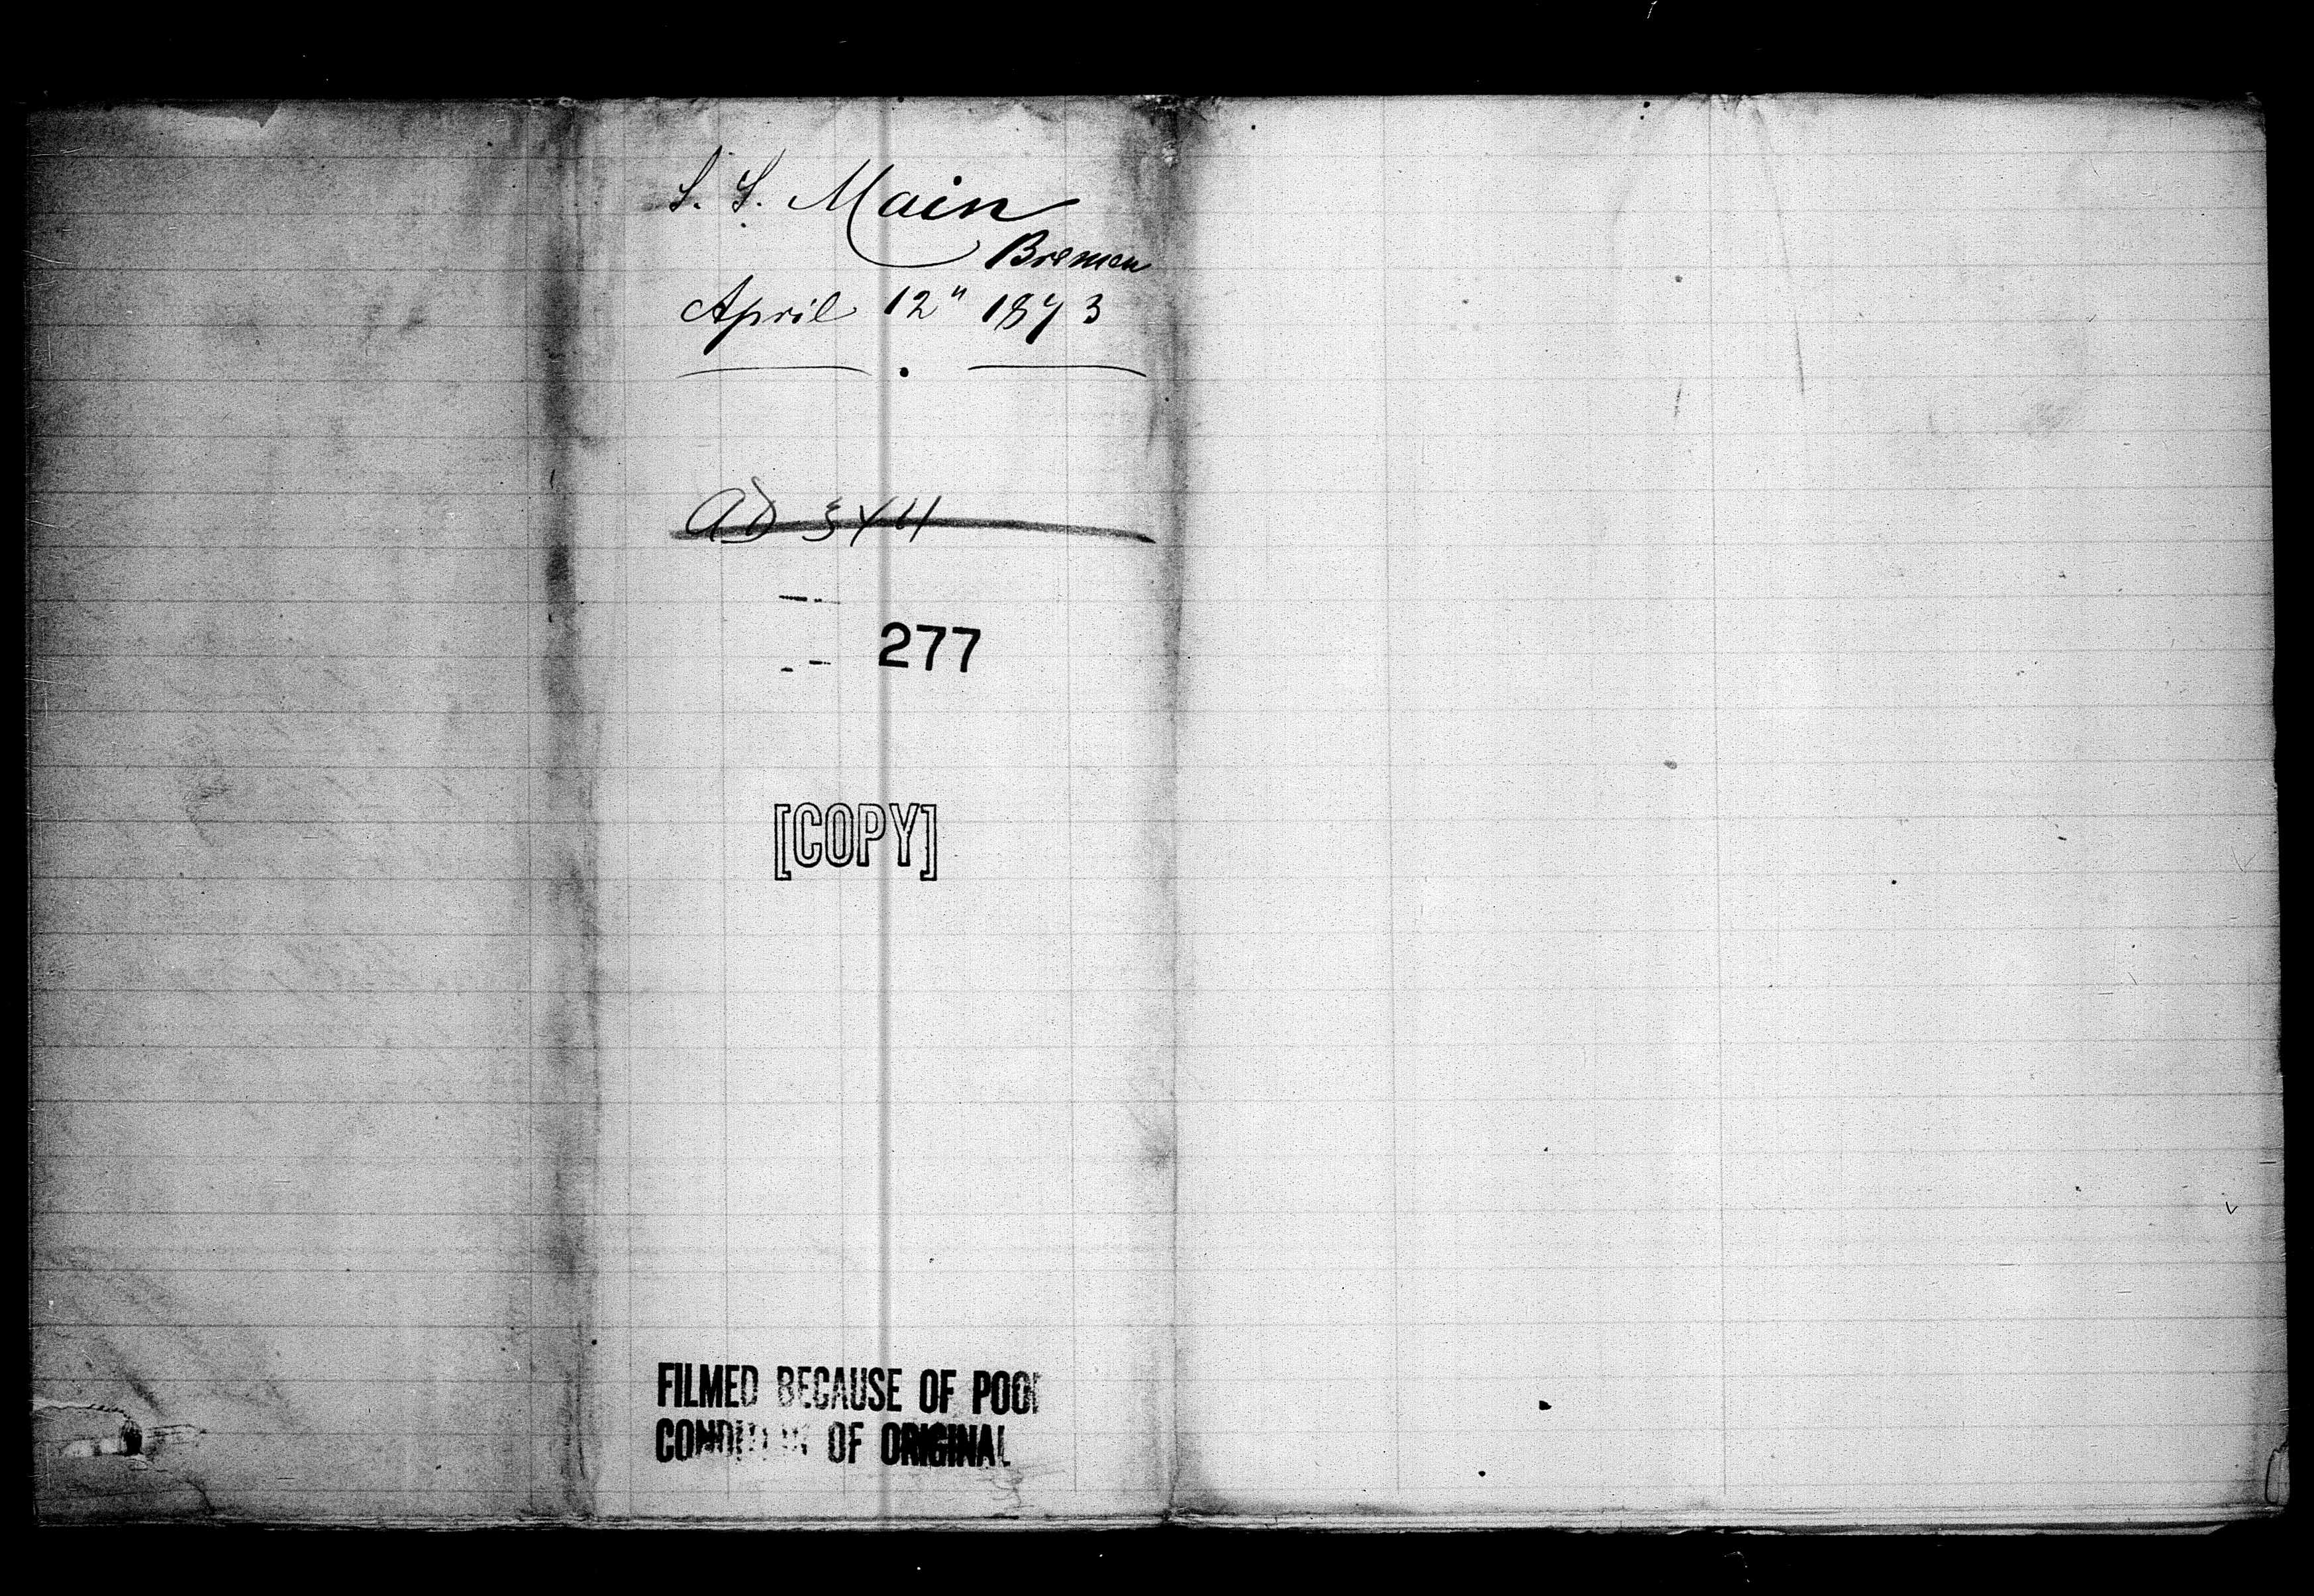 S. S. Main
Bremen
April 12" 1873
277
[COPY]
FILMED BECAUSE OF POOR
CONDITION OF ORIGINAL